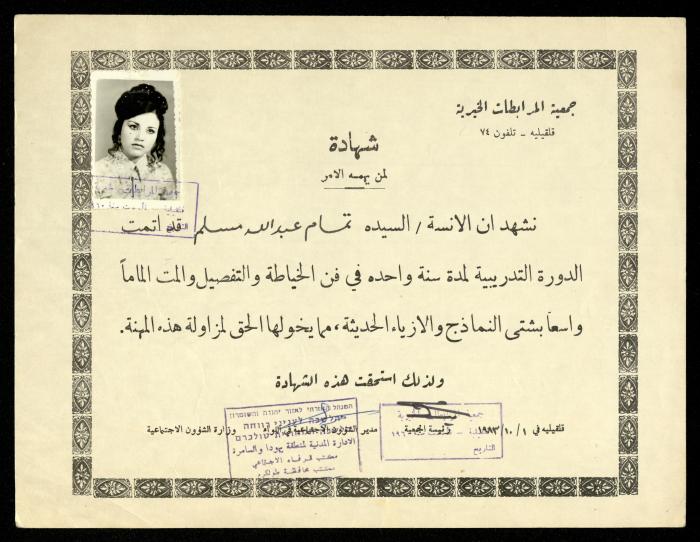 جمعية المرابطات الخيرية
قلقيليه - تلفون ٧٤
شهادة
لمن يهمه الامر
نشهد ان الانسة / السيده تمام عبدالله مسلم قد اتمت
الدورة التدريبية لمدة سنة واحده في فن الخياطة والتفصيل والمت الماماً
واسعاً بشتى النماذج والازياء الحديثة، مما يخولها الحق لمزاولة هذه المهنة.
ولذلك استحقت هذه الشهادة
قلقيليه في ١٩٨٣/١٠/١ رئيسة الجمعية مدير الشؤون الاجتماعية في وزارة الشؤون الاجتماعية
المנהל האזרחי לאזור יהודה והשומרון
الادارة المدنية لمنطقة يهودا والسامرة
مكتب محافظة طولكرم
التاريخ